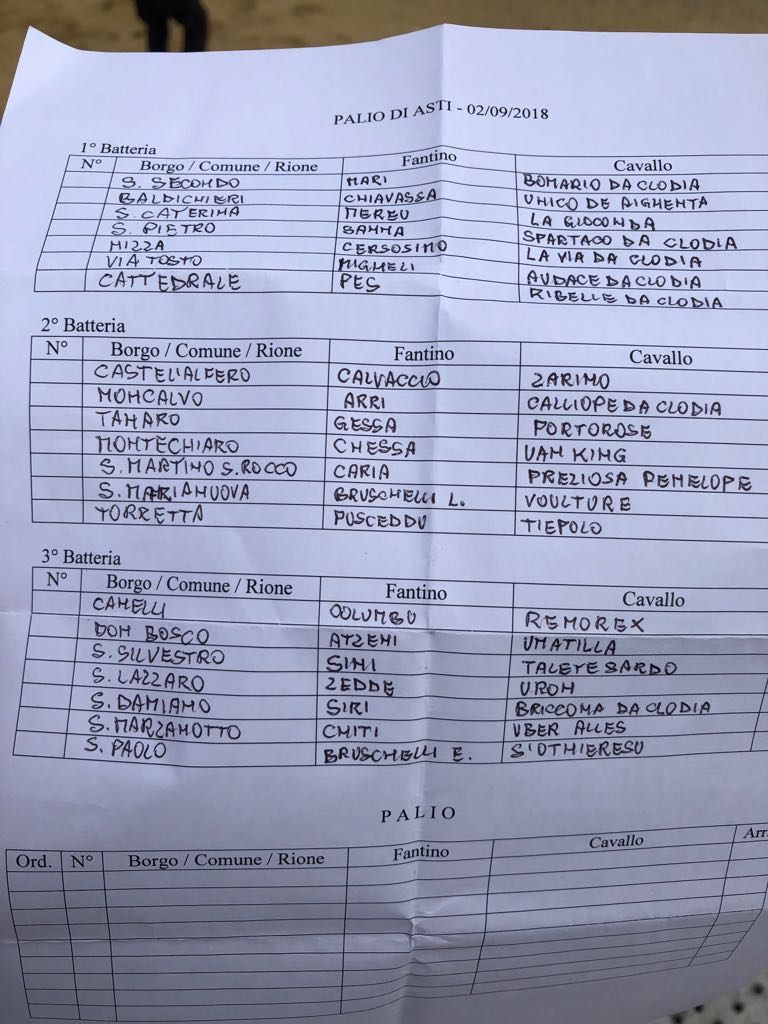 PALIO DI ASTI - 02/09/2018
1° Batteria
N° Borgo / Comune / Rione Fantino Cavallo
S. SECONDO MARI BOMARIO DA CLODIA
BALDICHIERI CHIAVASSA UNICO DE AIGHENTA
S. CATERINA MEREU LA GIOCONDA
S. PIETRO SANNA SPARTACO DA CLODIA
NIZZA CERSOSIMO LA VIA DA CLODIA
VIATOSTO MIGHELI AUDACE DA CLODIA
CATTEDRALE PES RIBELLE DA CLODIA
2° Batteria
N° Borgo / Comune / Rione Fantino Cavallo
CASTELL'ALFERO CALVACCIO ZARINO
MONCALVO ARRI CALLIOPE DA CLODIA
TANARO GESSA PORTOROSE
MONTECHIARO CHESSA VAN KING
S. MARTINO S. ROCCO CARIA PREZIOSA PENELOPE
S. MARIA NUOVA BRUSCHELLI L. VOULTURE
TORRETTA PUSCEDDU TIEPOLO
3° Batteria
N° Borgo / Comune / Rione Fantino Cavallo
CANELLI COLUMBU REMOREX
DON BOSCO ATZENI UMATILLA
S. SILVESTRO SINI TALETE SARDO
S. LAZZARO ZEDDE URON
S. DAMIANO SIRI BRICCONA DA CLODIA
S. MARZANOTTO CHITI UBER ALLES
S. PAOLO BRUSCHELLI E. S'OTHIERESU
PALIO
Ord. N° Borgo / Comune / Rione Fantino Cavallo Arr